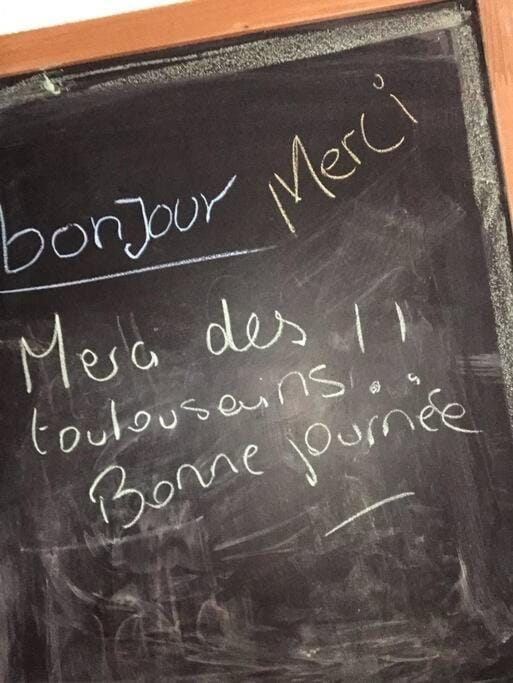 bonjour Merci
Merci des
toulousains !!
Bonne journée